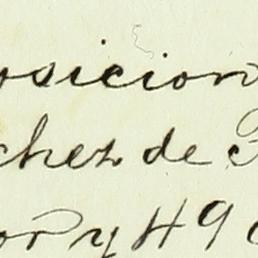 osicion
chez de
or y 49